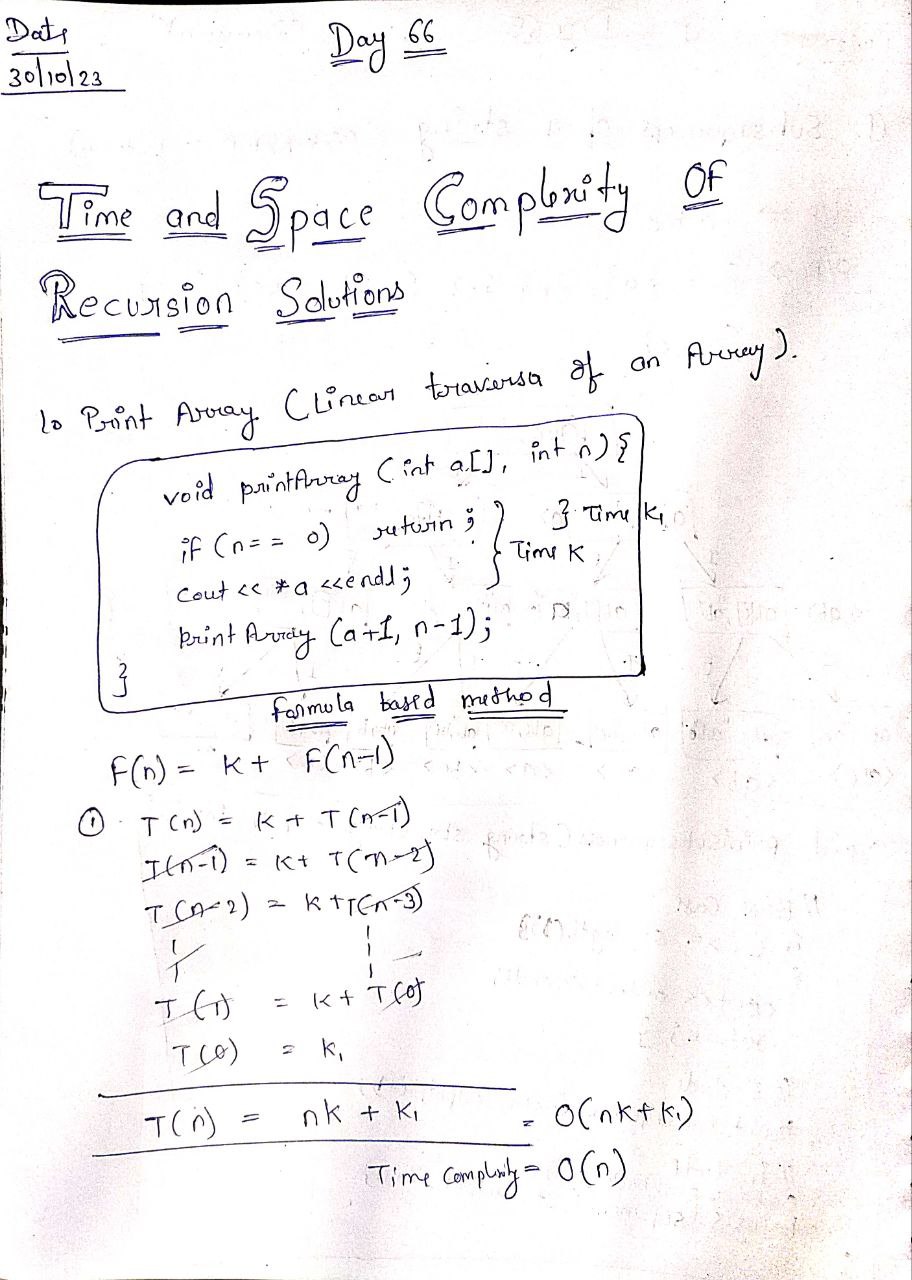 Date
30/10/23
Day 66
Time and Space Complexity Of
Recursion Solutions
1. Print Array (Linear traversa of an Array).
void printArray (int a[], int n) {
if (n == 0) return; } Time K₁
cout << *a << endl; } Time K
print Array (a+1, n-1);
}
formula based method
F(n) = K + F(n-1)
① T(n) = K + T(n-1)
T(n-1) = K + T(n-2)
T(n-2) = K + T(n-3)
T(1) = K + T(0)
T(0) = K₁
T(n) = nK + K₁ = O(nK + K₁)
Time Complexity = O(n)